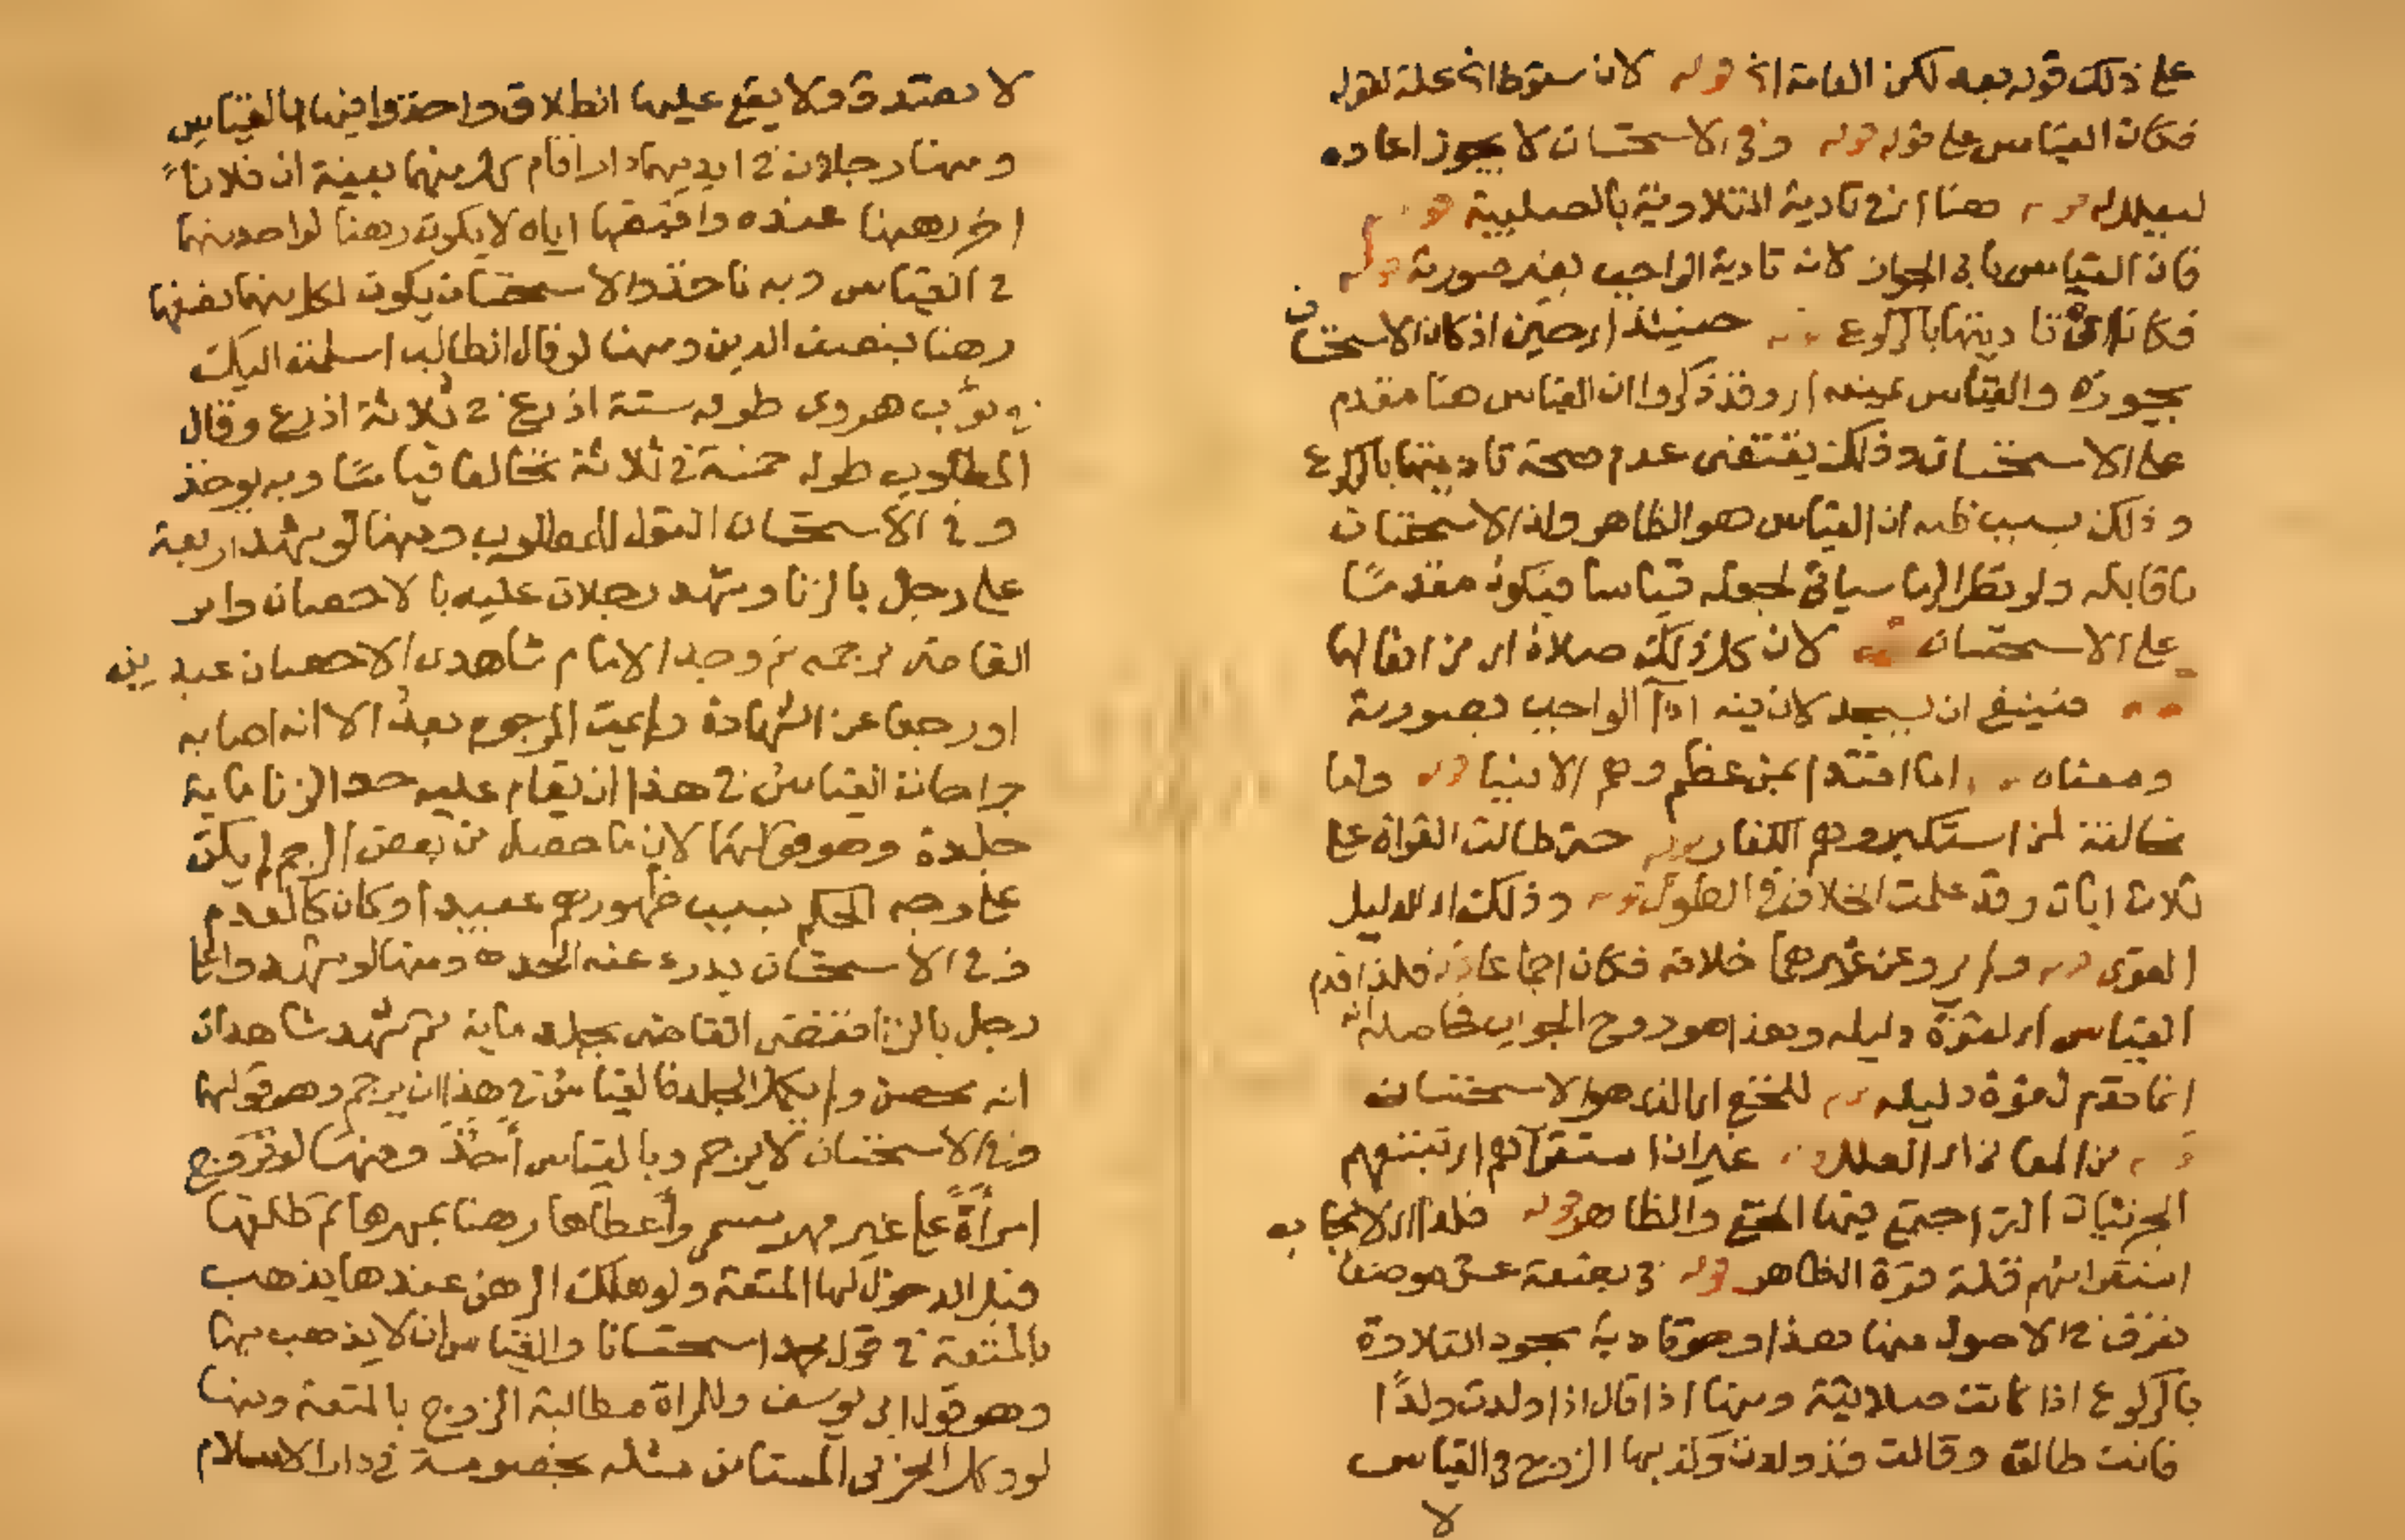 على ذلك قوله بعده لكن العامة الخ قوله لان سقوطا الخ علة لقوله
فكان القياس على قوله قوله وفي الاستحسان لا يجوز اعاده
هنا اي في تادية التلاوية بالصلبية قوله
فان القياس يابى الجواز لانه تادية الواجب بغير صورية قوله
تاديتها بالركوع قوله حينئذ اي حين اذ كان الاستحسان
يجوزه والقياس يمنعه اي وقد ذكروا ان القياس هنا مقدم
على الاستحسان وذلك يقتضى عدم صحة تاديتها بالركوع
وذلك بسبب ظنه ان القياس هو الظاهر وان الاستحسان
ما قابله ولو نظر الى ما سياتي لجعله قياسا فيكون مقدما
على الاستحسان لان كل ذلك صلاة اي من افعالها
فينبغي ان يسجد لان فيه اداء الواجب بصورية
ومعناه اما اقتدا بمن عظم وهم الانبيا قوله واما
مخالفة لمن استكبر وهم الكفار قوله حتى طالت القراة على
ثلاث ايات وقد علمت الخلاف في الطول قوله وذلك اي الدليل
القوى قوله ولم يرو عن غيرهما خلافه فكان اجماعا فلذا قدم
القياس اي لقوة دليله وهذا هو روح الجواب فحاصله انه
انما قدم لقوة دليله للخفي اي الذي هو الاستحسان
من المعانى اي العلل غير ان استقراهم اي تتبعهم
الجزئيات التي اجتمع فيها الخفي والظاهر قوله فلذا اي لايجابه
استقرائهم قلة قوة الظاهر قوله في بضعة عشر موضعا
تعرف في الاصول منها هذا وهو تادية سجود التلاوة
بالركوع اذا كانت صلاتية ومنها اذا قال اذا ولدت ولدًا
فانت طالق وقالت قد ولدت وكذبها الزوج في القياس
لا
لا تصدق ولا يقع عليها الطلاق واخذوا فيها بالقياس
ومنها رجلان في ايديهما دار اقام كل منهما بينة ان فلانًا
اخر رهنها عنده واقبضها اياه لا يكون رهنا لواحد منهما
في القياس وبه ناخذ والاستحسان يكون لكل منهما نصفها
رهنا بنصف الدين ومنها لو قال الطالب اسلمت اليك
في ثوب هروى طوله ستة اذرع في ثلاثة اذرع وقال
المطلوب طوله خمسة في ثلاثة تخالفا قياسًا وبه يوخذ
وفي الاستحسان القول للمطلوب ومنها لو شهد اربعة
على رجل بالزنا وشهد رجلان عليه بالاحصان وامر
القاضى برجمه ثم وجد الامام شاهدى الاحصان عبدين
او رجعا عن الشهادة ولم يمت المرجوم بعد الا انه اصابه
جراحات القياس في هذا ان يقام عليه حد الزنا ماية
جلدة وهو قولهما لان ما حصل من بعض الرجم لم يكن
على وجه الحكم بسبب ظهورهم عبيدا وكان كالعدم
وفي الاستحسان يدرء عنه الحد ومنها لو شهدوا على
رجل بالزنا فقضى القاضى بجلد ماية ثم شهد شاهدان
انه محصن ولم يكمل الجلد فالقياس في هذا ان يرجم وهو قولهما
وفي الاستحسان لا يرجم وبالقياس أخذ ومنها لو تزوج
امرأة على غير مهر مسمى وأعطاها رهنا بمهرها ثم طلقها
قبل الدخول لها المتعة ولو هلك الرهن عندها يذهب
بالمتعة في قول محمد استحسانا والقياس ان لا يذهب بها
وهو قول ابى يوسف وللمراة مطالبة الزوج بالمتعة ومنها
لو وكل الحربى المستامن مثله بخصومة في دار الاسلام